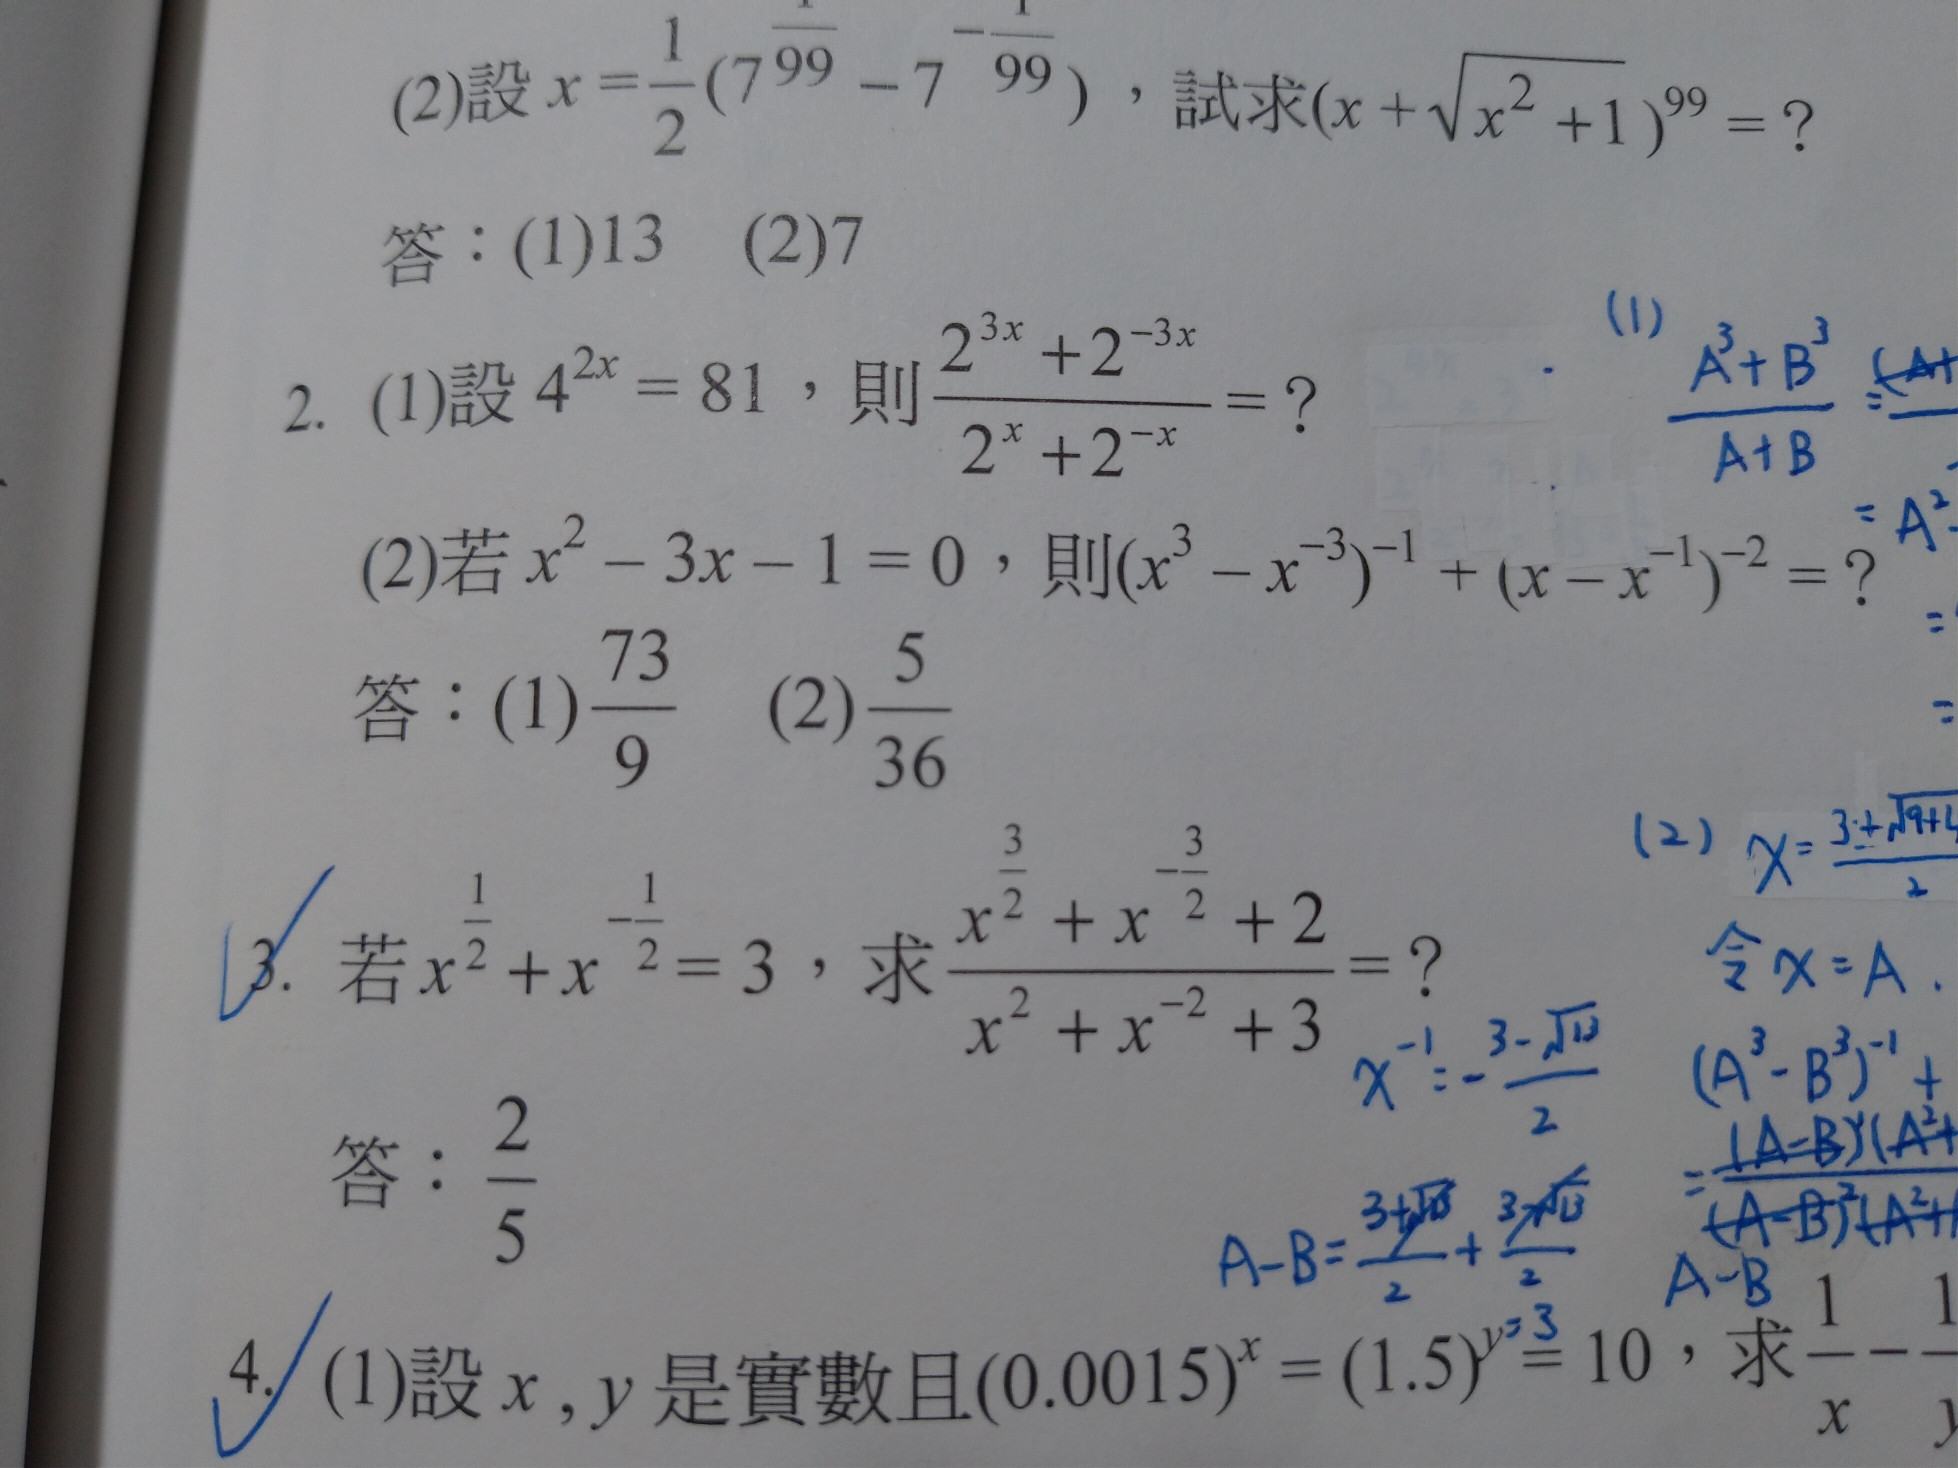 (2)設 x = 1/2 (7^{1/99} − 7^{−1/99})，試求(x + √(x² + 1))^{99} = ?
答：(1)13　(2)7
2. (1)設 4^{2x} = 81，則 (2^{3x} + 2^{−3x})/(2^x + 2^{−x}) = ?
(2)若 x² − 3x − 1 = 0，則(x³ − x^{−3})^{−1} + (x − x^{−1})^{−2} = ?
答：(1) 73/9　(2) 5/36
3. 若 x^{1/2} + x^{−1/2} = 3，求 (x^{3/2} + x^{−3/2} + 2)/(x² + x^{−2} + 3) = ?
答：2/5
4. (1)設 x , y 是實數且(0.0015)^x = (1.5)^y = 10，求 1/x − 1/y
(1)
(A³ + B³)/(A + B) = (A+
= A²-
=
=
(2) x = (3 ± √(9+4
2
令 x = A .
x^{-1} = - (3 - √13)/2
(A³ - B³)^{-1} +
= (A-B)(A²+
(A-B)²(A²+
A-B = (3+√13)/2 + (3-√13)/2
= 3
A-B